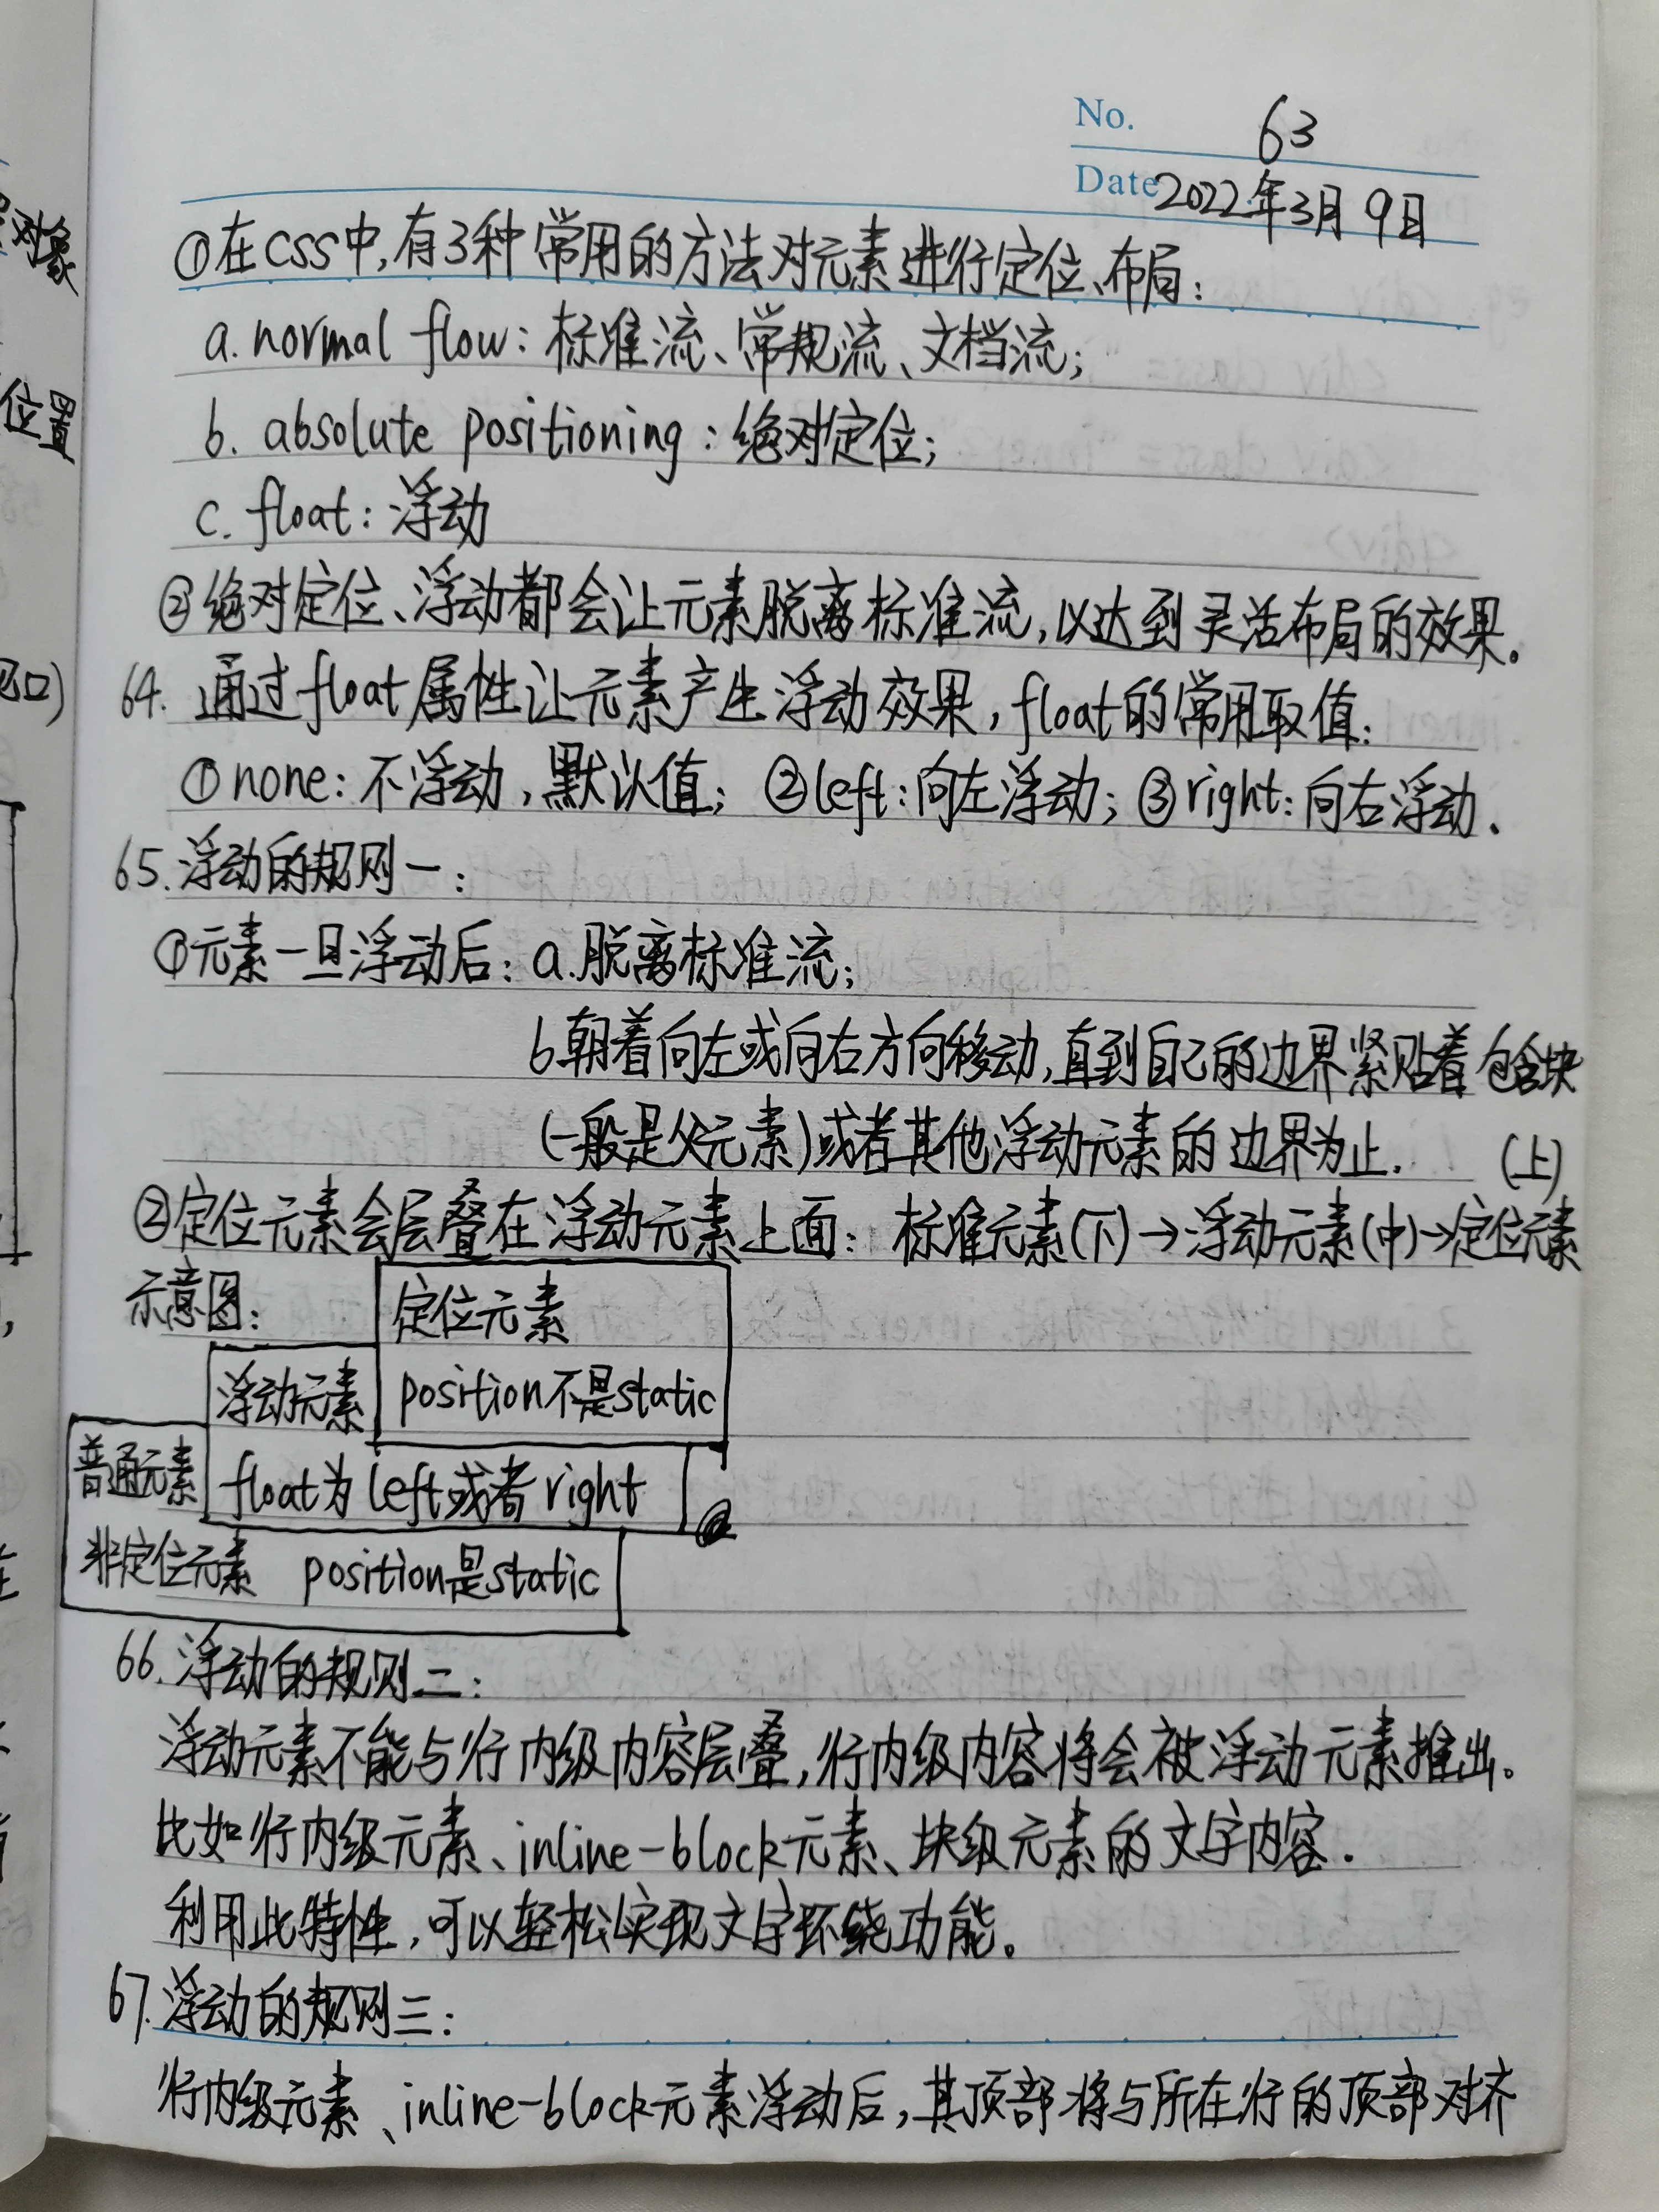 No. 63
Date 2022年3月9日
①在CSS中,有3种常用的方法对元素进行定位、布局:
a. normal flow: 标准流、常规流、文档流;
b. absolute positioning: 绝对定位;
c. float: 浮动
②绝对定位、浮动都会让元素脱离标准流,以达到灵活布局的效果。
64. 通过float属性让元素产生浮动效果,float的常用取值:
①none: 不浮动,默认值; ②left: 向左浮动; ③right: 向右浮动.
65. 浮动的规则一:
①元素一旦浮动后: a.脱离标准流;
b朝着向左或向右方向移动,直到自己的边界紧贴着包含块
(一般是父元素)或者其他浮动元素的边界为止. (上)
②定位元素会层叠在浮动元素上面: 标准元素(下)→浮动元素(中)→定位元素
示意图: 定位元素
浮动元素 position不是static
普通元素 float为left或者right
非定位元素 position是static
66. 浮动的规则二:
浮动元素不能与行内级内容层叠,行内级内容将会被浮动元素推出。
比如行内级元素、inline-block元素、块级元素的文字内容.
利用此特性,可以轻松实现文字环绕功能。
67. 浮动的规则三:
行内级元素、inline-block元素浮动后,其顶部将与所在行的顶部对齐
对象
位置
口)